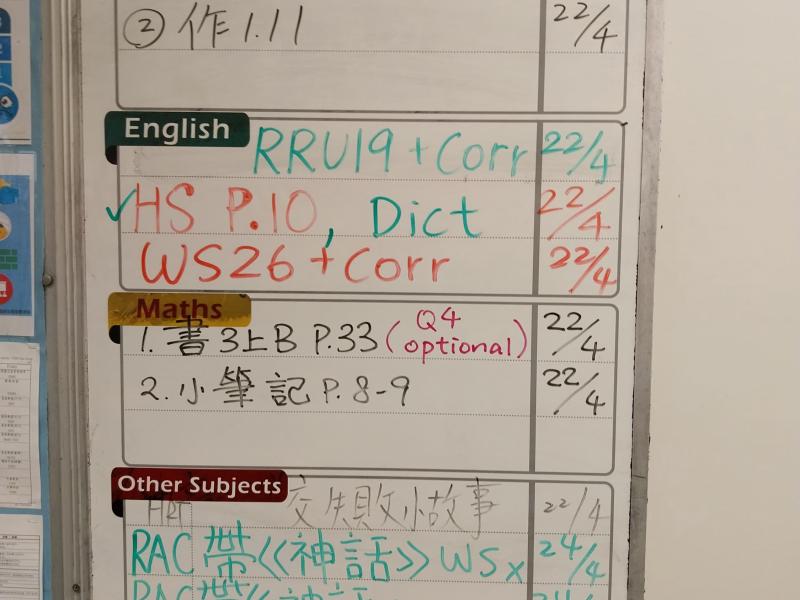 ② 作1.11 22/4
English
RRU19 + Corr 22/4
✓HS P.10, Dict 22/4
WS26 + Corr 22/4
Maths
1. 書3上B P.33 (Q4 optional) 22/4
2. 小筆記 P.8-9 22/4
Other Subjects
交失敗小故事 22/4
RAC 帶《神話》WS x 24/4